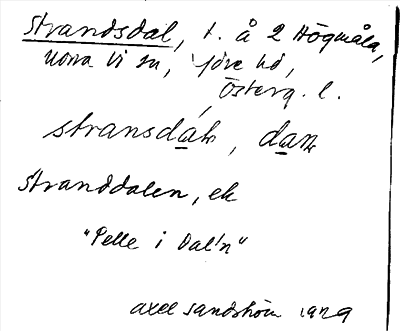 Strandsdal, t. å 2 Högmåla,
Norra Vi sn, Ydre hd,
Österg. l.
stransdáḷn, daṇ
Stranddalen, ek
"Pelle i Dal'n"
Axel Sandström 1929